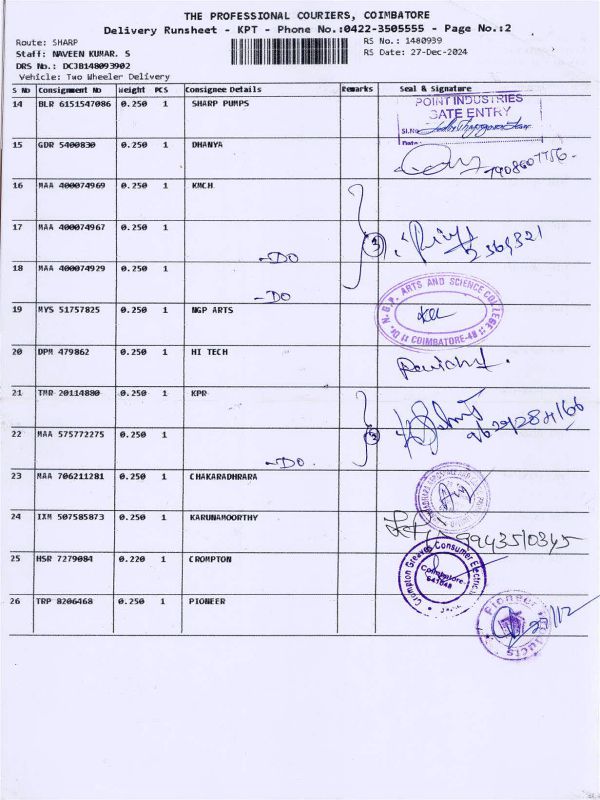 THE PROFESSIONAL COURIERS, COIMBATORE
Delivery Runsheet - KPT - Phone No.:0422-3505555 - Page No.:2
Route: SHARP
RS No.: 1480939
Staff: NAVEEN KUMAR. S
RS Date: 27-Dec-2024
DRS No.: DC3B148093902
Vehicle: Two Wheeler Delivery
S No Consignment No Weight PCS Consignee Details Remarks Seal & Signature
14 BLR 6151547086 0.250 1 SHARP PUMPS
POINT INDUSTRIES
GATE ENTRY
Sl.No
Date
15 GDR 5400830 0.250 1 DHANYA
7908607756
16 MAA 400074969 0.250 1 KMCH
17 MAA 400074967 0.250 1
-DO
3
18 MAA 400074929 0.250 1
-DO
19 MYS 51757825 0.250 1 NGP ARTS
Dr. N.G.P. ARTS AND SCIENCE COLLEGE
COIMBATORE-48
20 DPM 479862 0.250 1 HI TECH
21 TMR 20114880 0.250 1 KPR
22 MAA 575772275 0.250 1
-DO.
2
23 MAA 706211281 0.250 1 CHAKARADHRARA
24 IXM 507585873 0.250 1 KARUNAMOORTHY
9943510345
25 HSR 7279084 0.220 1 CROMPTON
Crompton Greaves Consumer Electric
Coimbatore
641048
26 TRP 8206468 0.250 1 PIONEER
Pioneer Products
27/12